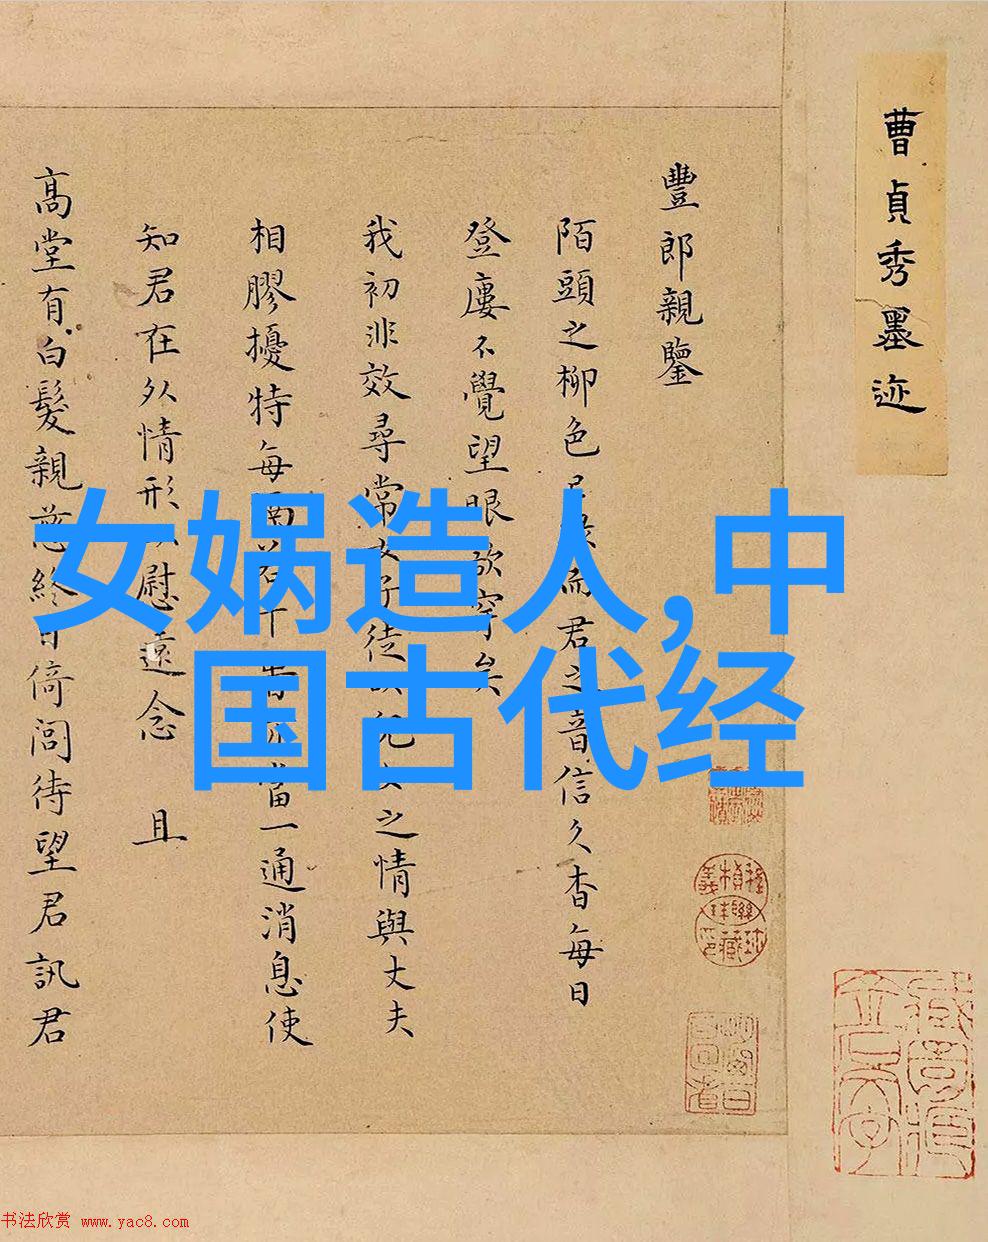 曹貞秀墨迹
豐郎親鑒
陌頭之柳色 而君之音信久杳每日
登廔不覺望眼欲穿矣
我初非效尋常女子徒 兒女之情與丈夫
相膠擾特每 一通消息使
知君在外情形 慰遠念 且
高堂有白髮親 終日倚閭待望君訊君
女娲造人,中
国古代经
书法欣赏 www.yac8.com